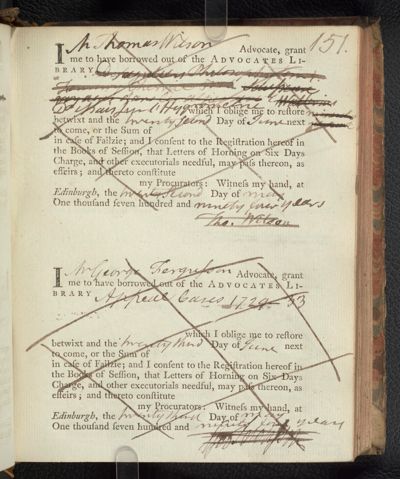 151.
I Mr Thomas Wilson Advocate, grant
me to have borrowed out of the ADVOCATES LI-
BRARY
which I oblige me to restore
betwixt and the twenty second Day of June next
to come, or the Sum of
in case of Failzie; and I consent to the Registration hereof in
the Books of Session, that Letters of Horning on Six Days
Charge, and other executorials needful, may pass thereon, as
effeirs; and thereto constitute
my Procurators: Witness my hand, at
Edinburgh, the twenty second Day of May
One thousand seven hundred and ninety four years
Tho. Wilson
I Mr George Fergusson Advocate, grant
me to have borrowed out of the ADVOCATES LI-
BRARY Appeal Cases 1729-33
which I oblige me to restore
betwixt and the twenty third Day of June next
to come, or the Sum of
in case of Failzie; and I consent to the Registration hereof in
the Books of Session, that Letters of Horning on Six Days
Charge, and other executorials needful, may pass thereon, as
effeirs; and thereto constitute
my Procurators: Witness my hand, at
Edinburgh, the twenty third Day of May
One thousand seven hundred and ninety four years